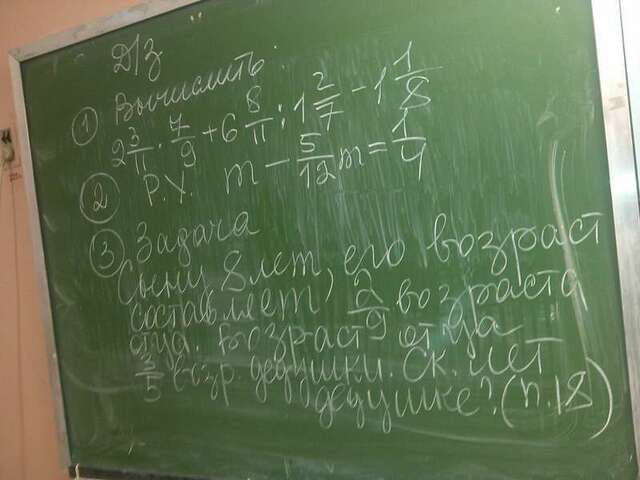 Д/З
① Вычислить:
2 3/11 · 7/9 + 6 8/11 : 1 2/7 - 1 1/8
② Р.У. m - 5/12 m = 1/4
③ Задача
Сыну 8 лет, его возраст
составляет 2/9 возраста
отца. Возраст отца
3/5 возр. дедушки. Ск. лет
дедушке? (п.18)